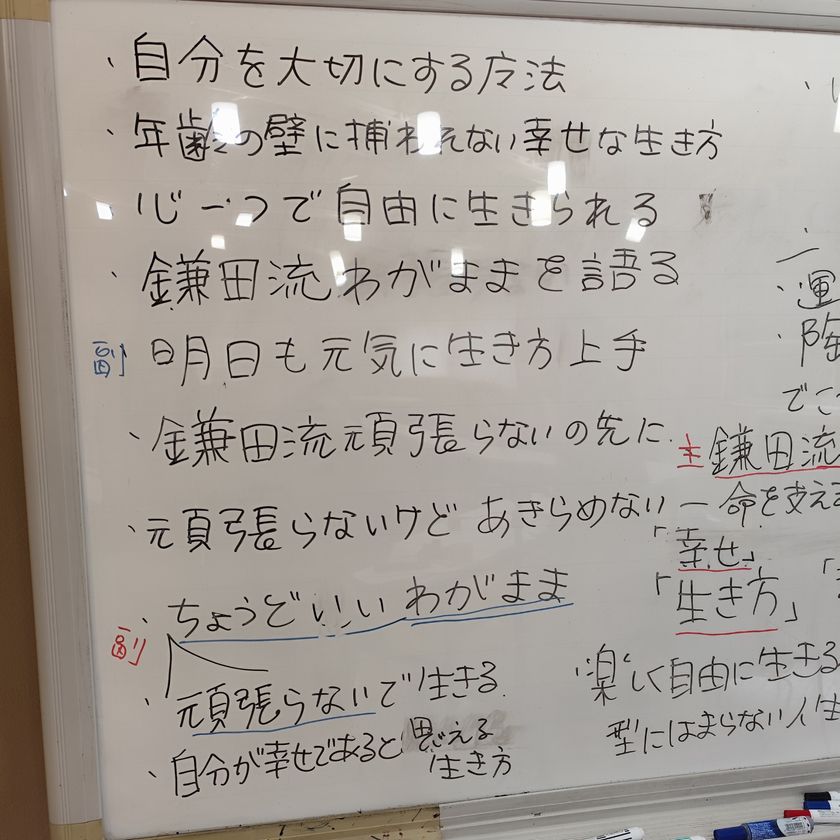 ・自分を大切にする方法
・年齢の壁に捕われない幸せな生き方
心一つで自由に生きられる
・鎌田流わがままを語る
副 明日も元気に生き方上手
・鎌田流頑張らないの先に
・頑張らないけど あきらめない
・ちょうどいい わがまま
副
・頑張らないで生きる
・自分が幸せであると思える
生き方
・運
・陶
でこ
主 鎌田流
一命を支え
「幸せ」
「生き方」「
楽しく自由に生きる
型にはまらない人生